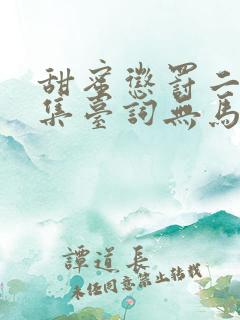 甜蜜懲罰二
集臺詞無馬
譚道長
未经同意禁止转载